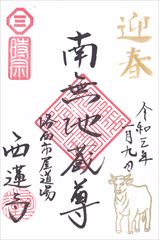 迎春
令和三年
一月九日
時宗
南無地蔵尊
市屋道場
西蓮寺